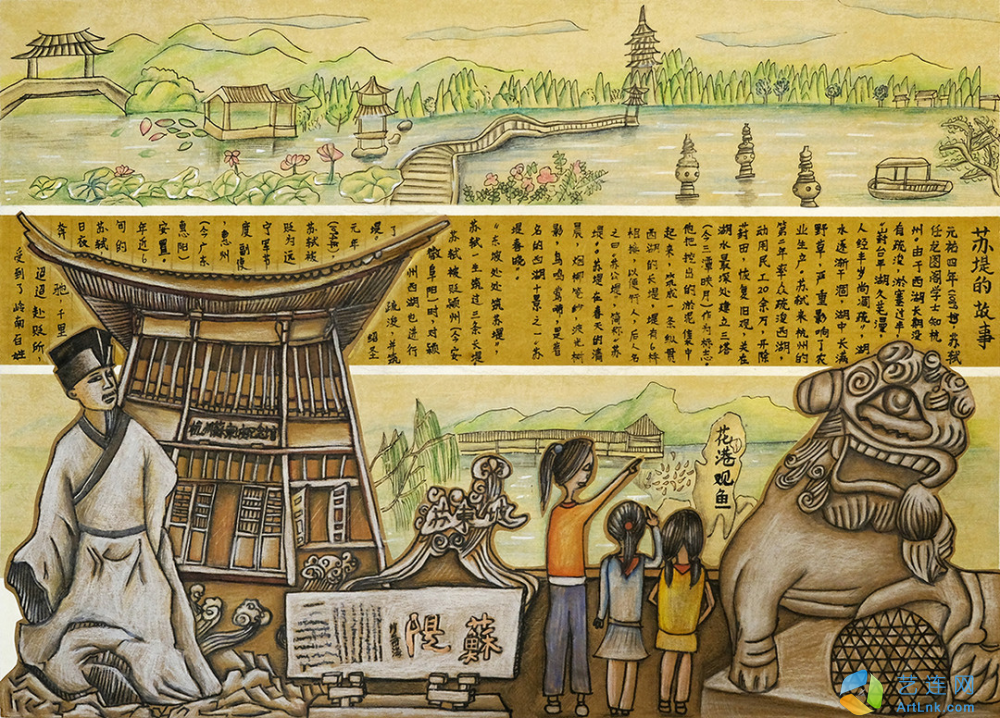 苏堤的故事
元祐四年(1089年),苏轼
任龙图阁学士知杭
州。由于西湖长期没
有疏浚,淤塞过半,
"葑台平湖久芜漫,
人经丰岁尚凋疏"。湖
水逐渐干涸,湖中长满
野草,严重影响了农
业生产。苏轼来杭州的
第二年率众疏浚西湖,
动用民工20余万,开除
葑田,恢复旧观,又在
湖水最深处建立三塔
(今三潭映月)作为标志。
他把挖出的淤泥集中
起来,筑成一条纵贯
西湖的长堤,堤有6桥
相接,以便行人,后人名
之曰"苏公堤",简称"苏
堤"。苏堤在春天的清
晨,烟柳笼纱,波光树
影,鸟鸣莺啼,是著
名的西湖十景之一"苏
堤春晓"。
"东坡处处筑苏堤",
苏轼一生筑过三条长堤。
苏轼被贬颍州(今安
徽阜阳)时,对颍
州西湖也进行
了疏浚,并筑
堤。绍圣
元年
苏轼被
贬为远
宁军节
度副使
,惠州
(今广东
惠阳)
安置。
年近6
旬的
苏轼,
日夜
奔驰千里
迢迢赴贬所,
受到了岭南百姓
杭州苏东坡纪念馆
苏东坡
蘇堤
花港观鱼
艺连网
ArtLnk.com